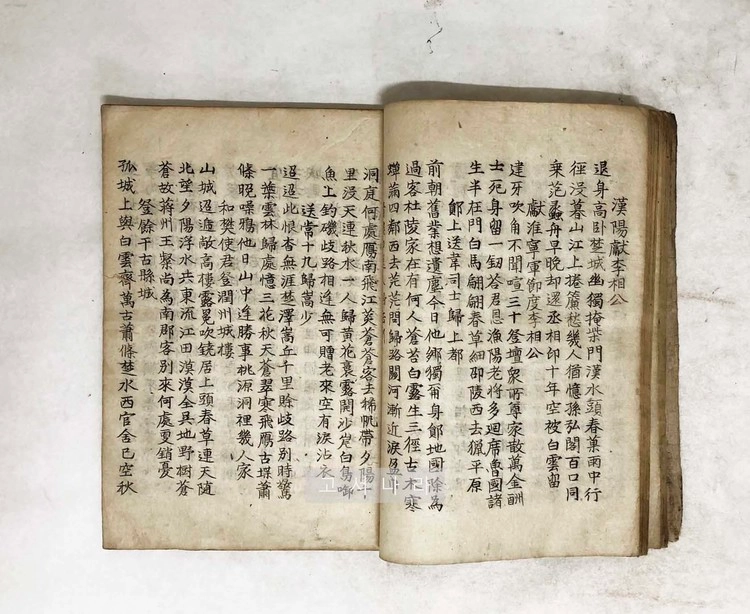 漢陽獻李相公
退身高卧楚城幽獨掩柴門漢水頭春草雨中行
徑沒暮山江上捲簾愁幾人猶憶孫弘閣百口同
乘范蠡舟早晚却還丞相印十年空被白雲留
獻淮寧軍節度李相公
建牙吹角不聞喧三十登壇衆所尊家散萬金酬
士死身留一釰答君恩漁陽老將多迴席魯國諸
生半在門白馬翩翩春草細邵陵西去獵平原
鄖上送韋司士歸上都
前朝舊業想遺塵今日他鄉獨爾身鄖地國除爲
過客杜陵家在有何人蒼苔白露生三徑古木寒
蟬滿四鄰西去茫茫問歸路關河漸近淚
洞庭何處鴈南飛江菼蒼蒼客去稀帆帶夕陽千
里沒天連秋水一人歸黃花裛露開沙岸白鳥啣
魚上釣磯歧路相逢無可贈老來空有淚沾衣
送常十九歸嵩少
迢迢此恨杳無涯楚澤嵩丘千里賖歧路別時驚
一葉雲林歸處憶三花秋天蒼翠寒飛鴈古堞蕭
條晚噪鴉他日山中逢勝事桃源洞裡幾人家
和樊使君登潤州城樓
山城迢遰敞高樓露冕吹鐃居上頭春草連天隨
北望夕陽浮水共東流江田漠漠全吳地野樹蒼
蒼故蔣州王粲尚爲南郡客別來何處更銷憂
登餘干古縣城
孤城上與白雲齊萬古蕭條楚水西官舍已空秋